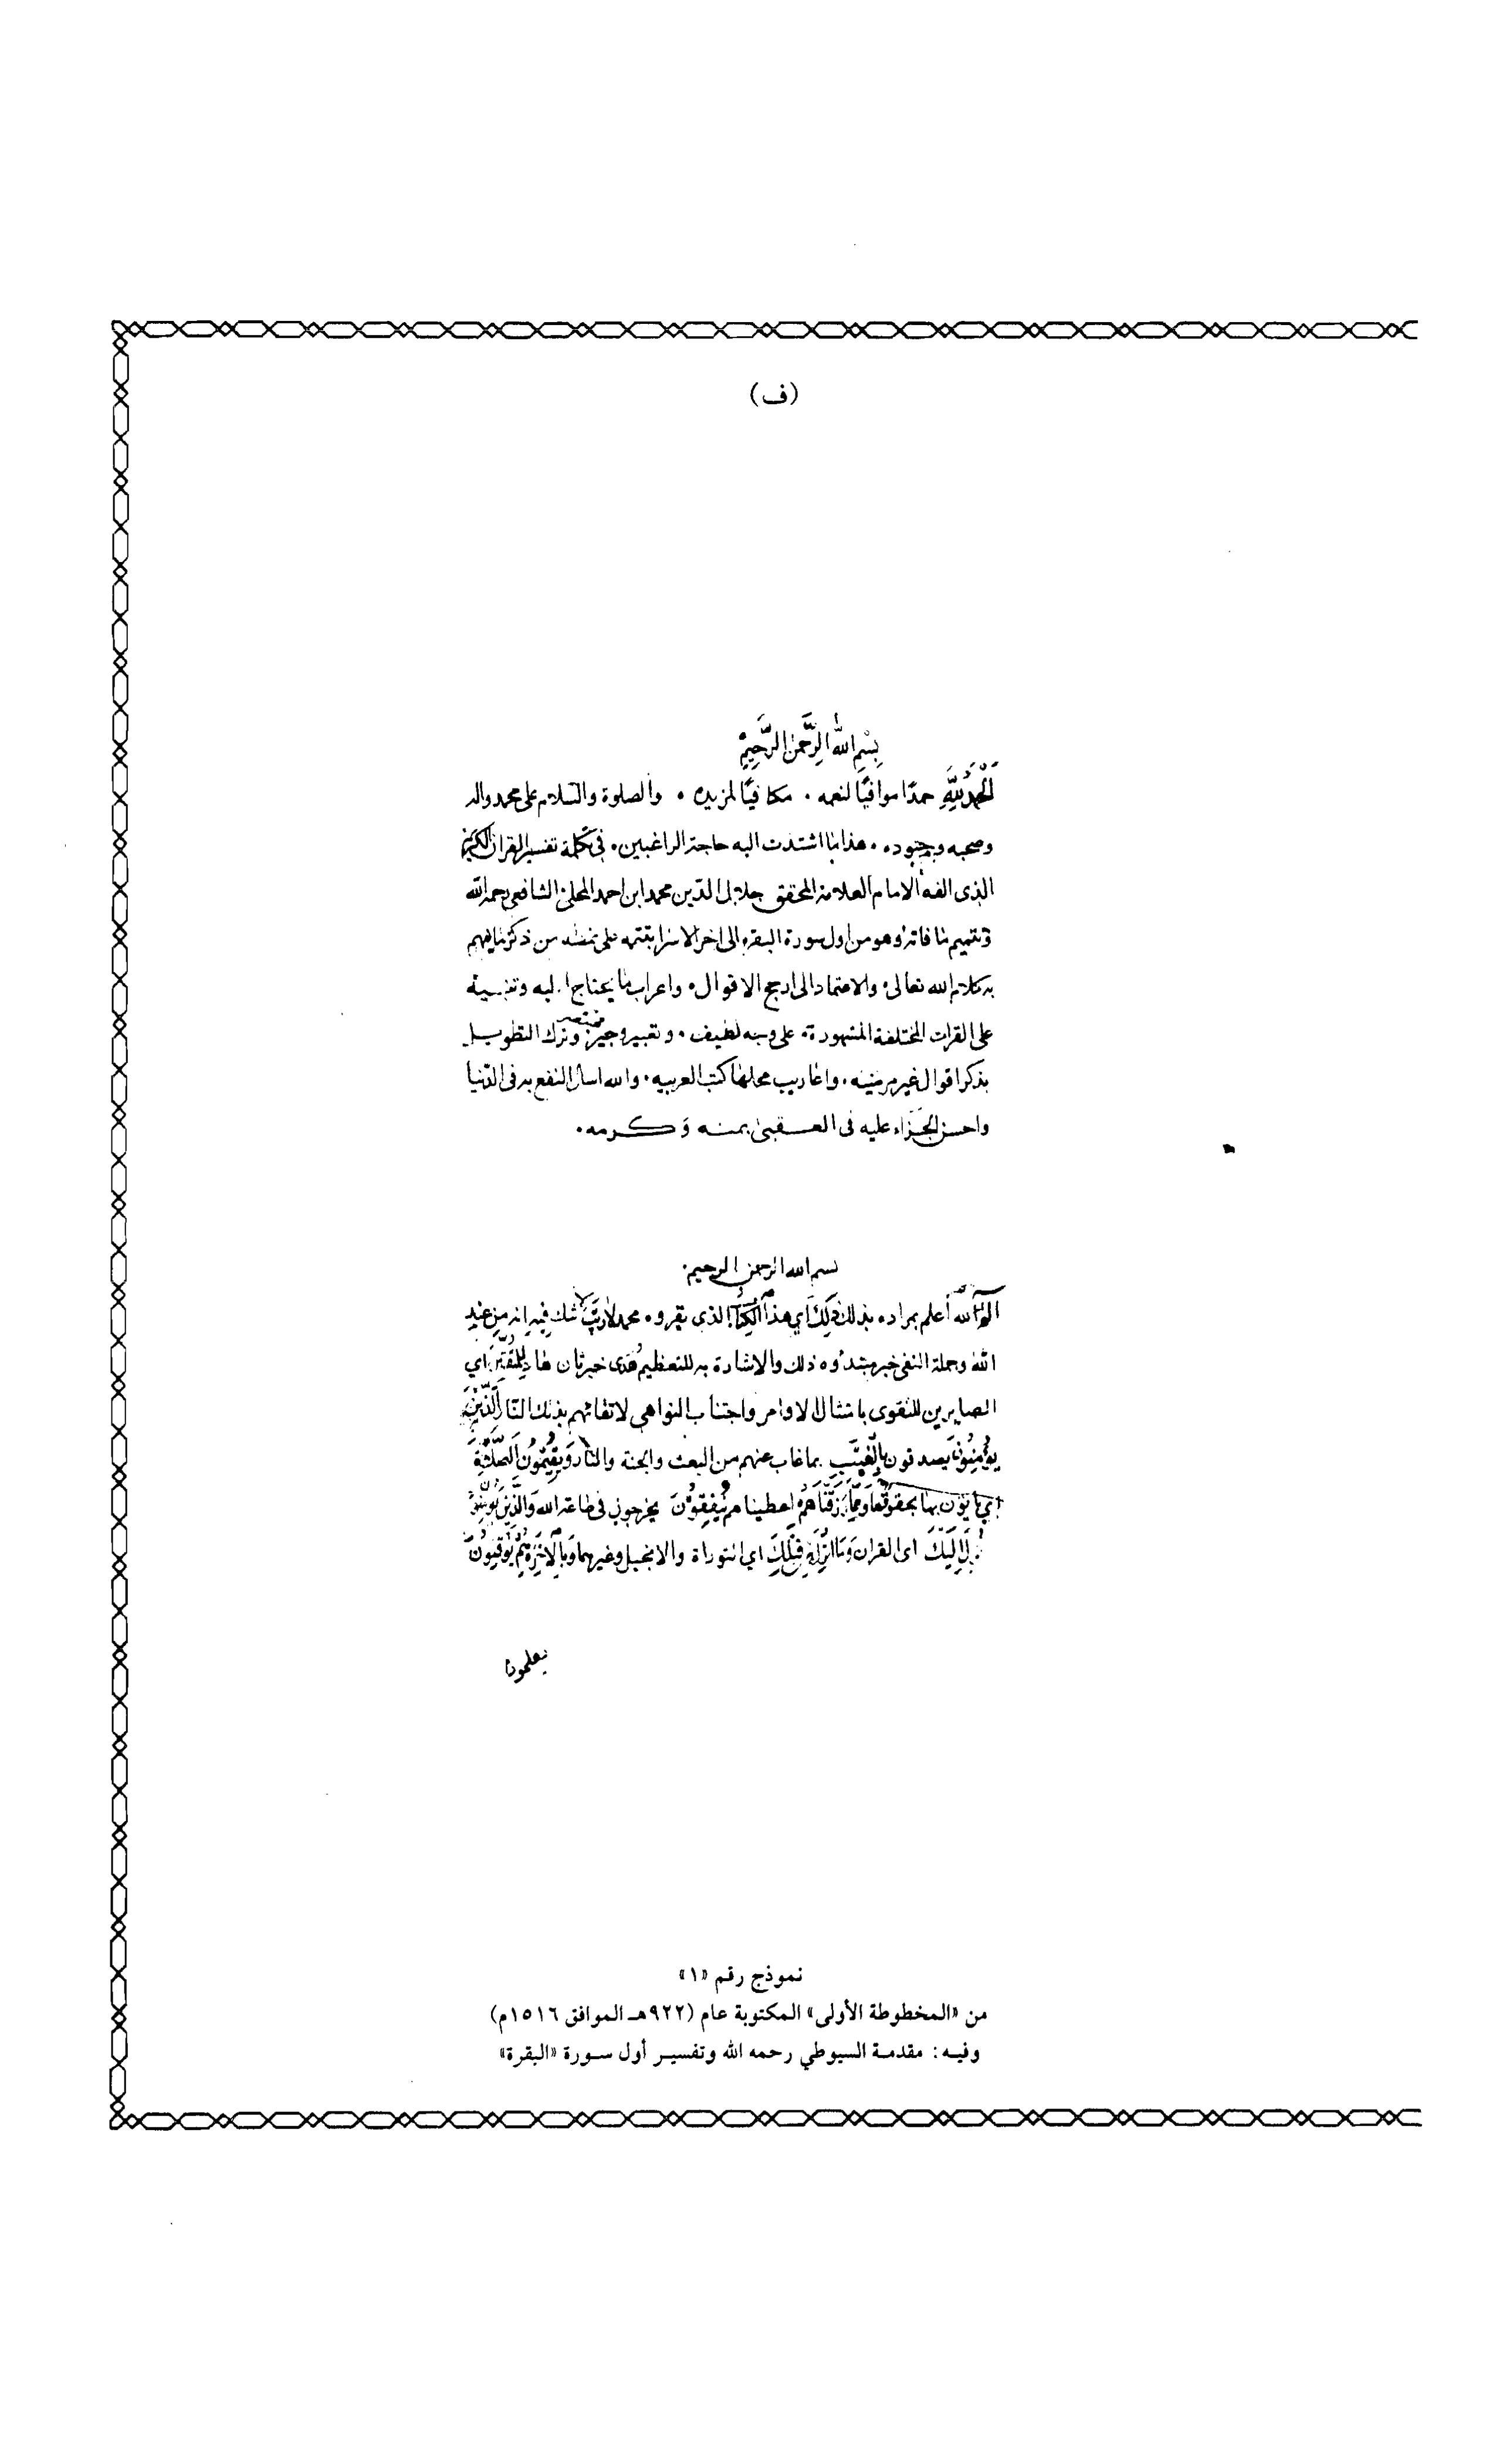 (ف)
بِسْمِ اللهِ الرَّحْمٰنِ الرَّحِيْمِ
اَلْحَمْدُ لِلّٰهِ حمدًا موافيًا لنعمه ۰ مكافيًا لمزيده ۰ والصلوة والسّلام على محمد واله
وصحبه وجنوده ۰ هذا ما اشتدت اليه حاجة الراغبين ۰ في تكملة تفسير القران الكريم
الذى الفه الامام العلامة المحقق جلال الدّين محمد ابن احمد المحلى الشافعى رحمه الله
وتتميم ما فاته وهو من اول سورة البقره الى اخر الاسرا بتتمه على نمطه من ذكر ما يفهم
به كلام الله تعالى ۰ والاعتماد الى ارجح الاقوال ۰ واعراب ما يحتاج اليه وتنبيه
على القرات المختلفة المشهورة ۰ على وجه لطيف ۰ وتعبير وجيز مختصر وترك التطويل
بذكر اقوال غير مرضيه ۰ واعاريب محلها كتب العربيه ۰ والله اسال النفع به فى الدّنيا
واحسن الجَزَاء عليه فى العقبىٰ بمنه وَكرمه ۰
بسم الله الرحمن الرحيم ۰
الم الله أعلم بمراده بذلك ذٰلِكَ اي هذا الْكِتَابُ الذى يقروه محمد لَا رَيْبَ شك فِيهِ انه من عند
الله وجملة النفى خبر مبتدؤه ذلك والاشارة به للتعظيم هُدًى خبر ثان هاد لِلْمُتَّقِيْنَ اي
الصايرين للتقوى بامتثال الاوامر واجتناب النواهي لاتقائهم بذلك النار اَلَّذِيْنَ
يُؤْمِنُوْنَ يصدقون بِالْغَيْبِ بما غاب عنهم من البعث والجنة والنار وَيُقِيْمُوْنَ الصَّلٰوةَ
اي ياتون بها بحقوقها وَمِمَّا رَزَقْنَاهُمْ اعطيناهم يُنْفِقُوْنَ يخرجون في طاعة الله وَالَّذِيْنَ يُؤْمِنُوْنَ
اِلَيْكَ اى القران وَمَا اُنْزِلَ مِنْ قَبْلِكَ اي التوراة والانجيل وغيرهما وَبِالْاٰخِرَةِ هُمْ يُوْقِنُوْنَ
يعلمون
نموذج رقم «١»
من «المخطوطة الأولى» المكتوبة عام (٩٢٢هـ الموافق ١٥١٦م)
وفيه: مقدمة السيوطي رحمه الله وتفسير أول سورة «البقرة»